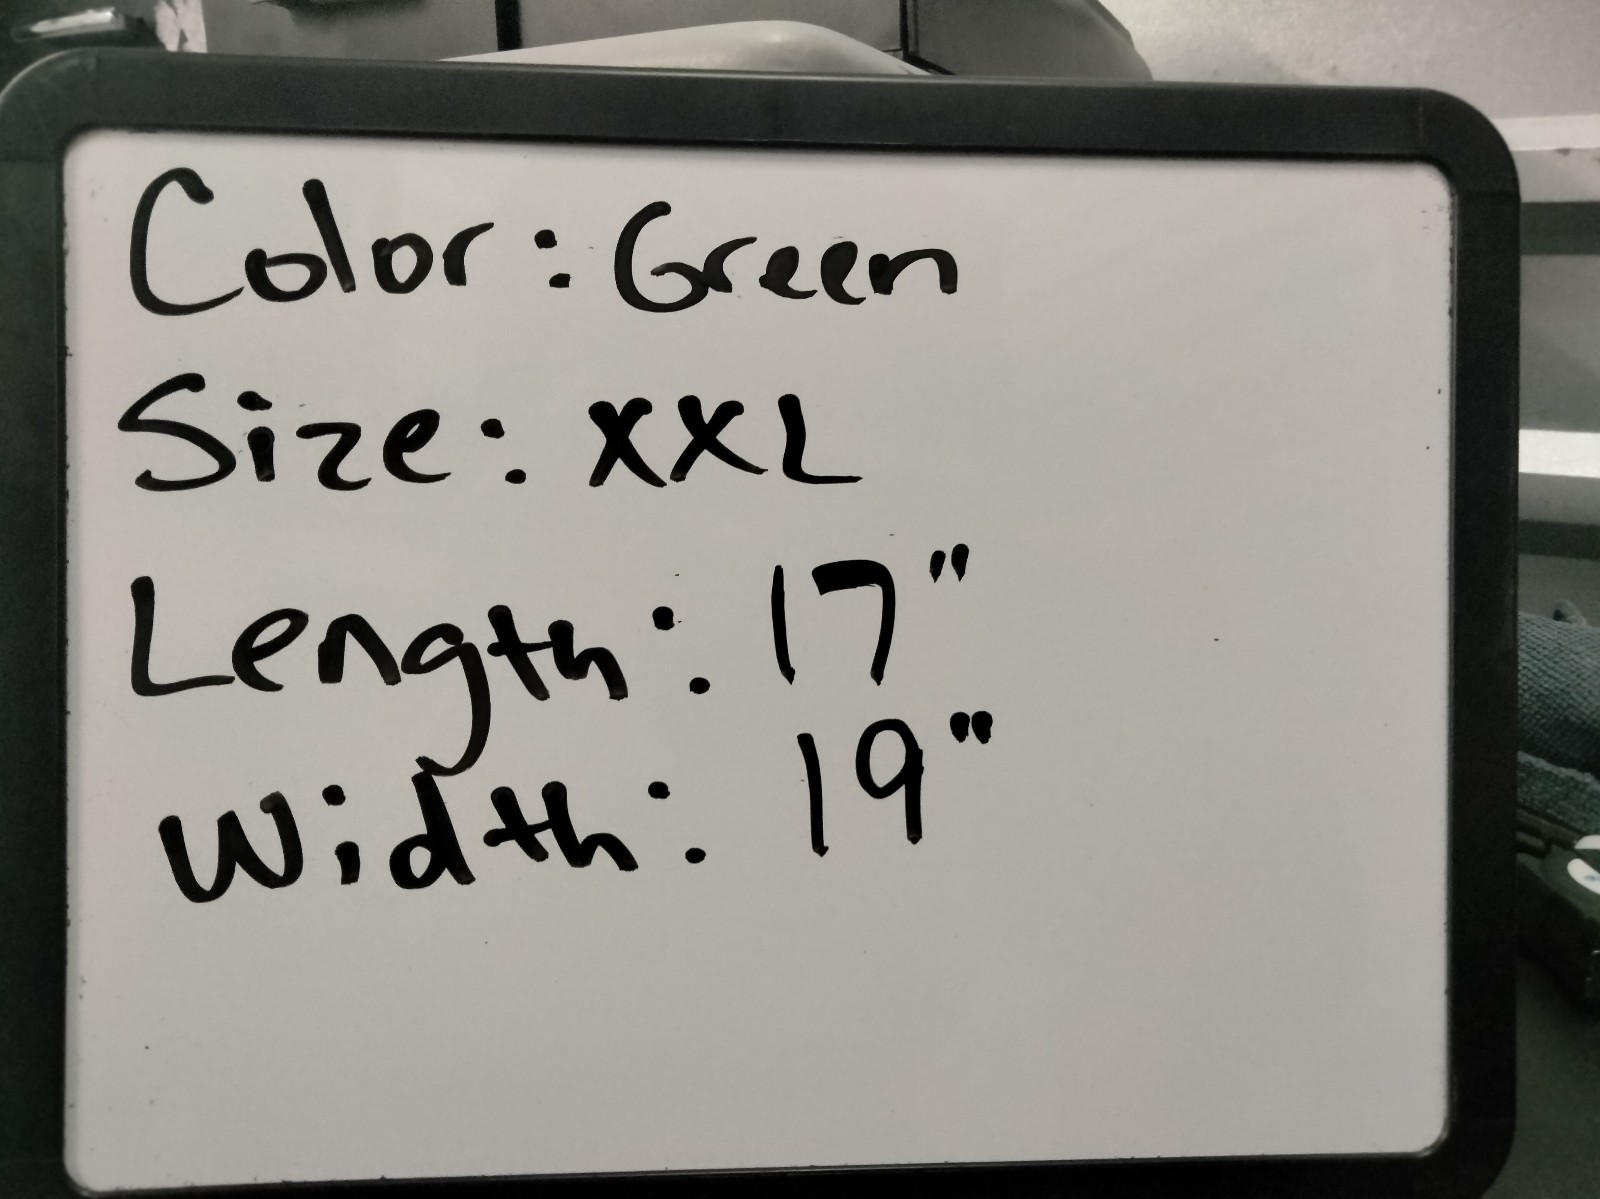 Color: Green
Size: XXL
Length: 17"
Width: 19"